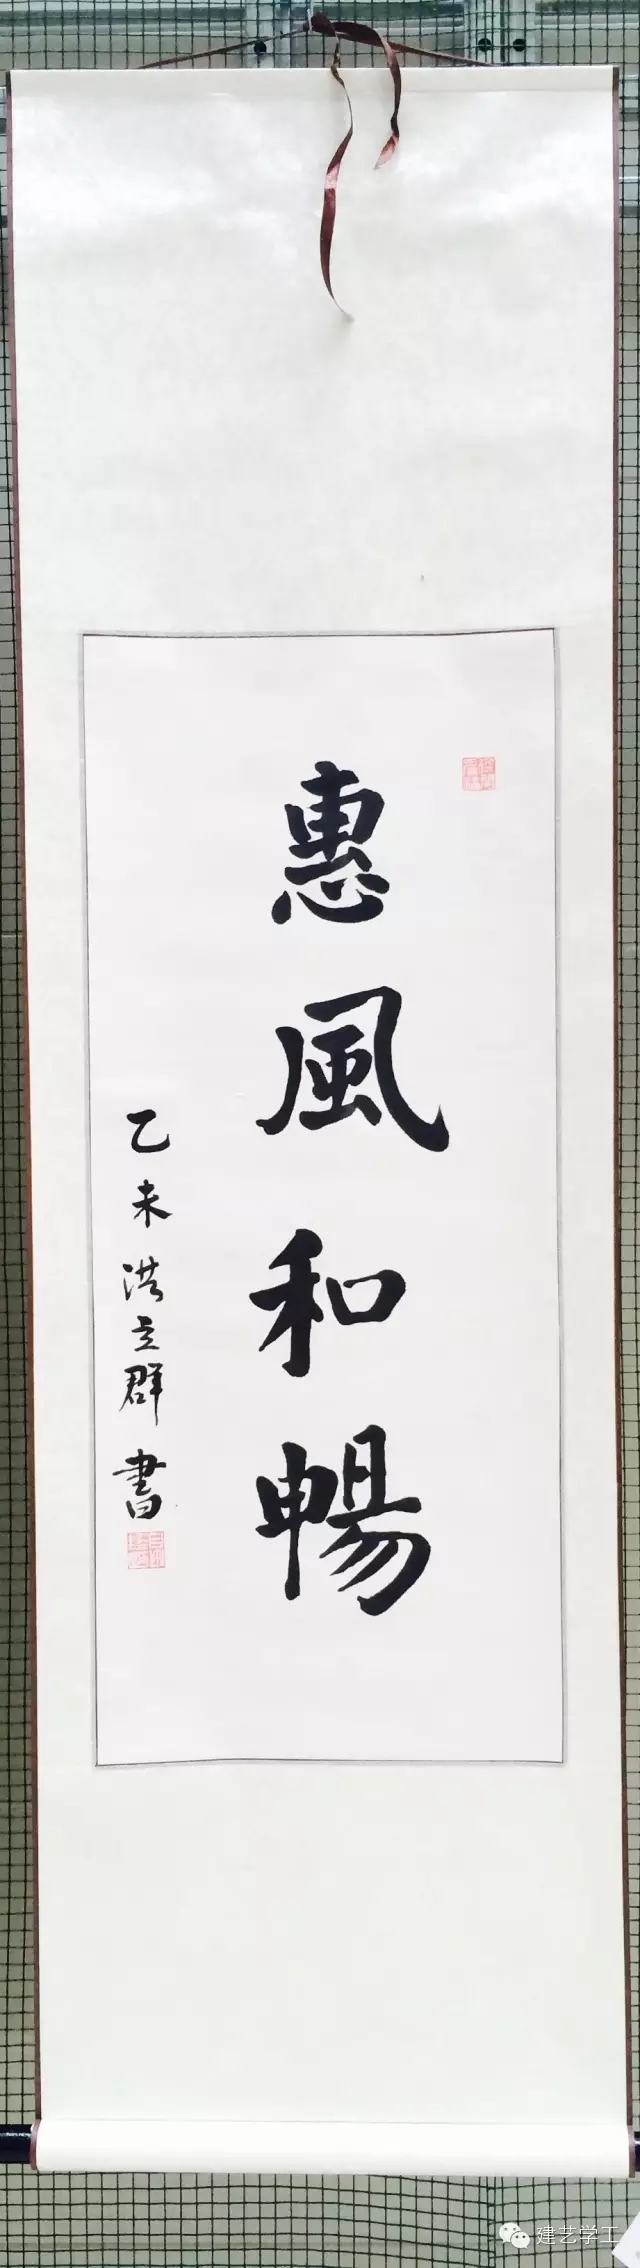 惠風和暢
乙未洪立群書
建艺学工